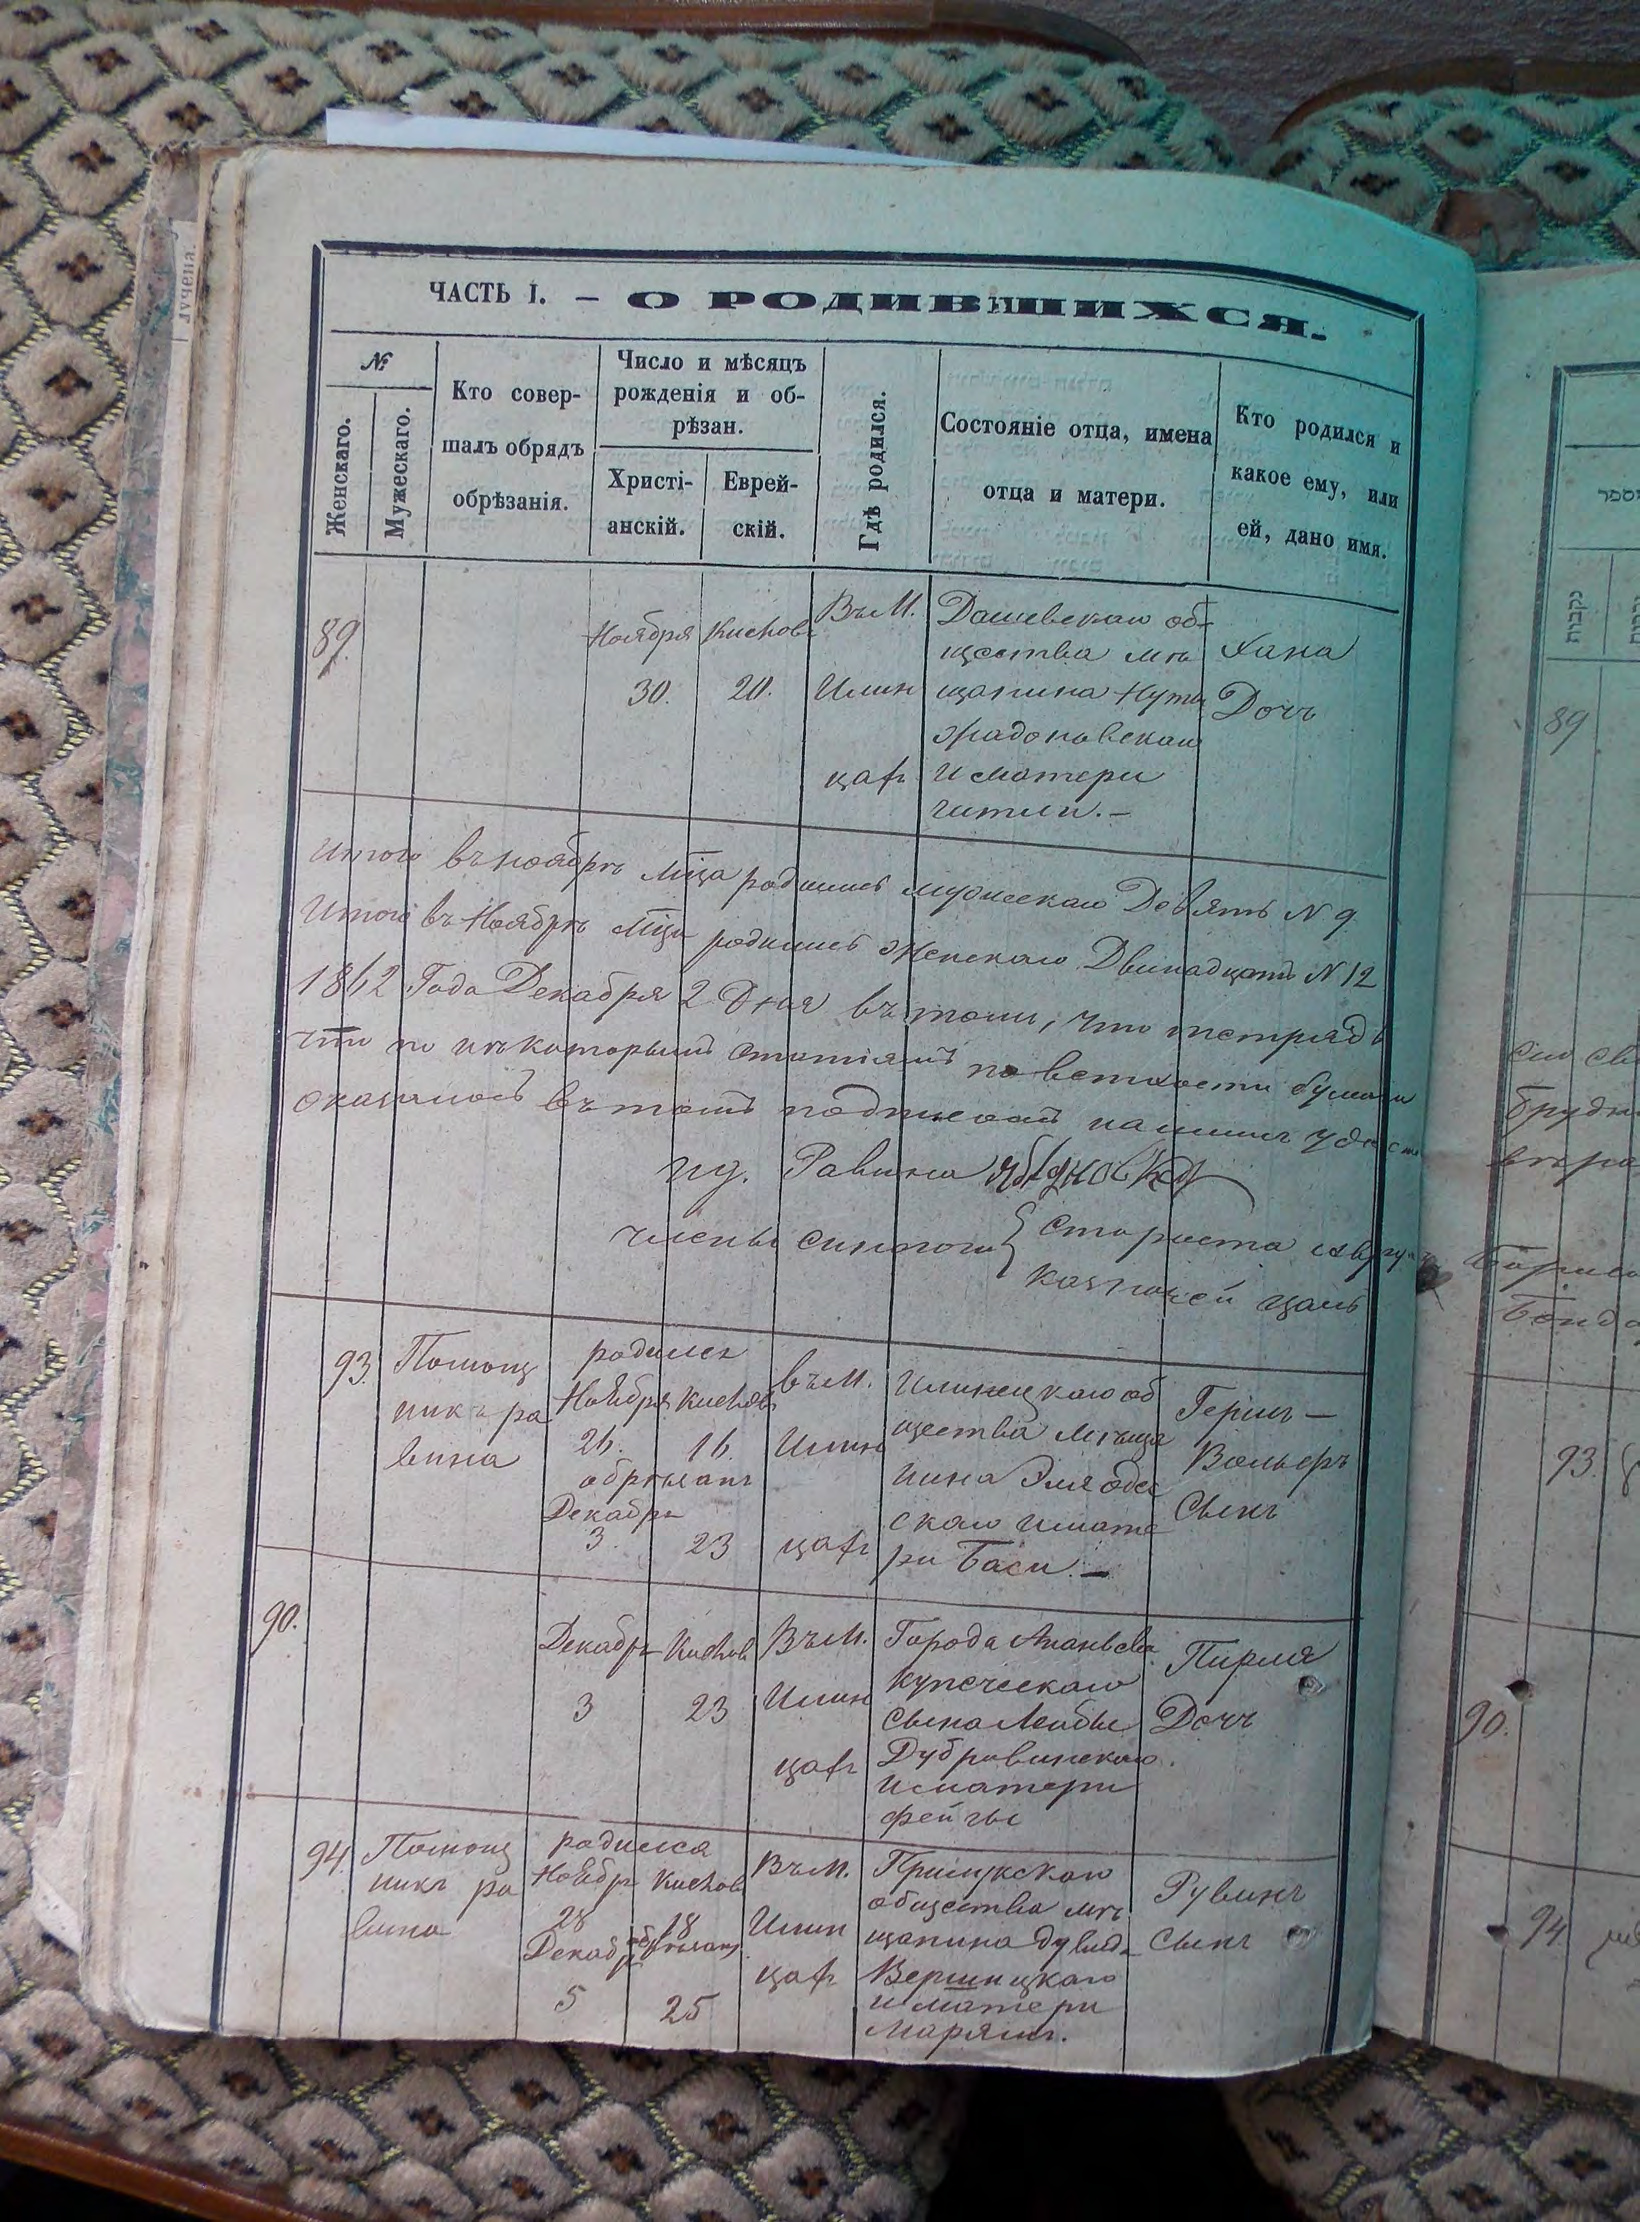 ЧАСТЬ I. — О РОДИВШИХСЯ.
№
Женскаго.
Мужескаго.
Кто совер-
шалъ обрядъ
обрѣзанія.
Число и мѣсяцъ
рожденія и об-
рѣзан.
Христі-
анскій.
Еврей-
скій.
Гдѣ родился.
Состояніе отца, имена
отца и матери.
Кто родился и
какое ему, или
ей, дано имя.
89.
Ноября
30.
Кислов
20.
Въ М.
Илин
цаѣ
Дашевскаго об-
щества мѣ
щанина Нуты
Жадоновскаго
и матери
Читли. —
Хана
Дочь
Итого въ ноябрѣ Мца родились мужескаго Девять N 9
Итого въ Ноябрѣ Мца родились женскаго Двенадцать N 12
1862 Года Декабря 2 Дня въ томъ, что тетрядь
что по нѣкоторымъ статіямъ по ветхости бумаги
оказалось въ томъ подписомъ нашимъ
Равина
члены синагоги { Староста
Казначей
93.
Помощ
никъ ра
вина
родился
Ноября
26.
обрѣзанъ
Декабрь
3.
Кислов
16.
23
въ М.
Илин
цаѣ
Илинецкаго об
щества Мѣща
нина Эля Одес
скаго и мате
ри Баси. —
Герш —
Вольфъ
Сынъ
90.
Декабрь
3
Кислов
23
Въ М.
Илин
цаѣ
Города Ананьева
купеческаго
сына Лейбы
Дубровинскаго
и матери
Фейгы
Пирля
Дочь
94.
Помощ
никъ ра
вина
родился
Ноябрь
28
Декабрь
5
Кислов
18
обрѣзанъ
25
Въ М.
Илин
цаѣ
общества мѣ
щанина Дувид
Вершицкаго
и матери
Марямъ.
Рувинъ
Сынъ
נקבות
89
93.
90.
94